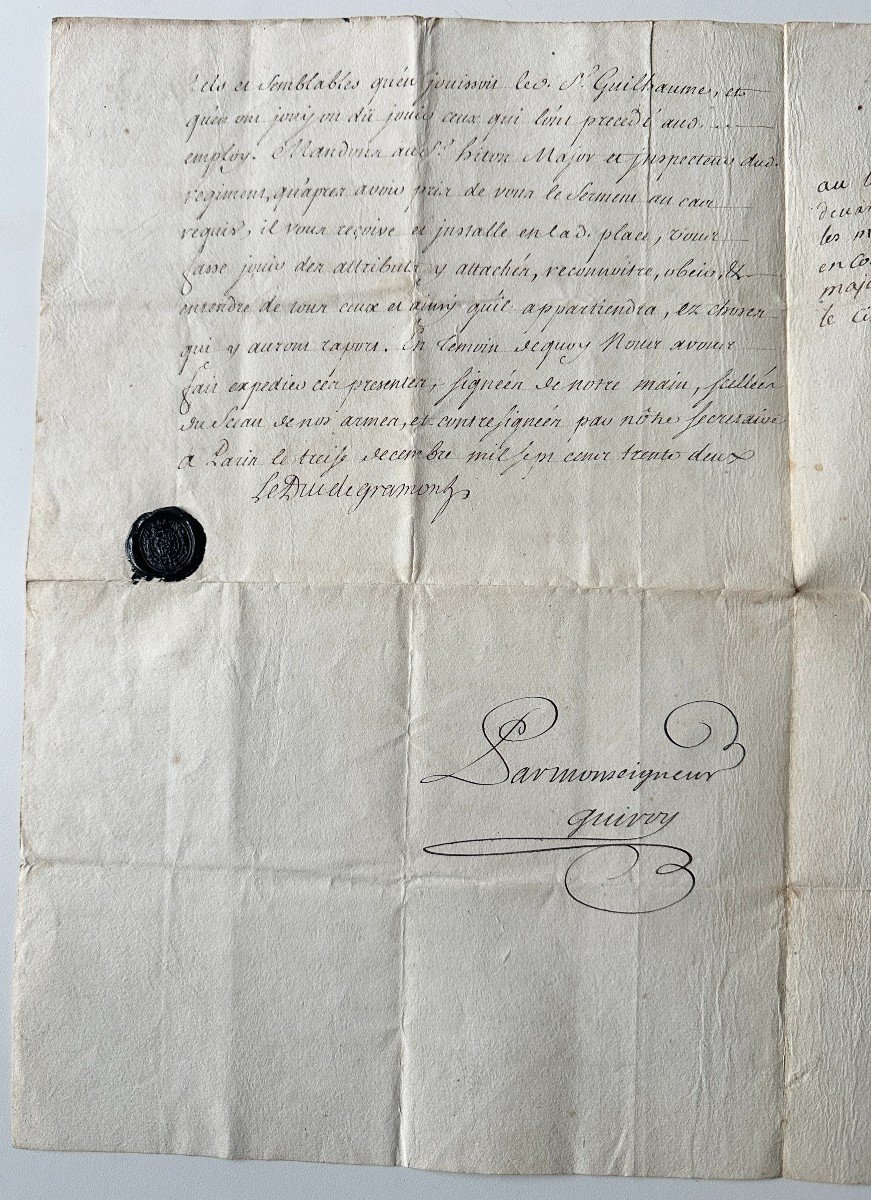 tels et semblables qu'en jouissoit led. Sr. Guilhaume, et
qu'en ont jouy ou dû jouir ceux qui l'ont precedé aud.
employ. Mandons au Sr. hiton Major et inspecteur dud.
regiment, qu'apres avoir pris de vous le serment au cas
requis, il vous reçoive et installe en lad. place, vous
fasse jouir des attributs y attachés, reconnoitre, obeir, &
entendre de tous ceux et ainsy qu'il appartiendra, ez choses
qui y auront raport. En temoin de quoy Nous avons
fait expedier ces presentes, signées de notre main, scellées
du Sceau de nos armes, et contresignées par nôtre secretaire
a Paris le treise decembre mil sept cent trente deux
Le Duc de gramont
Par monseigneur
quiroy
au
devan
les m
en co
majo
le ci